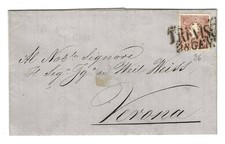 TREVIS
28 GEN.
Al Nob.^e Signore
Il Sig.^r Jg.^o Weil Weiss
Verona